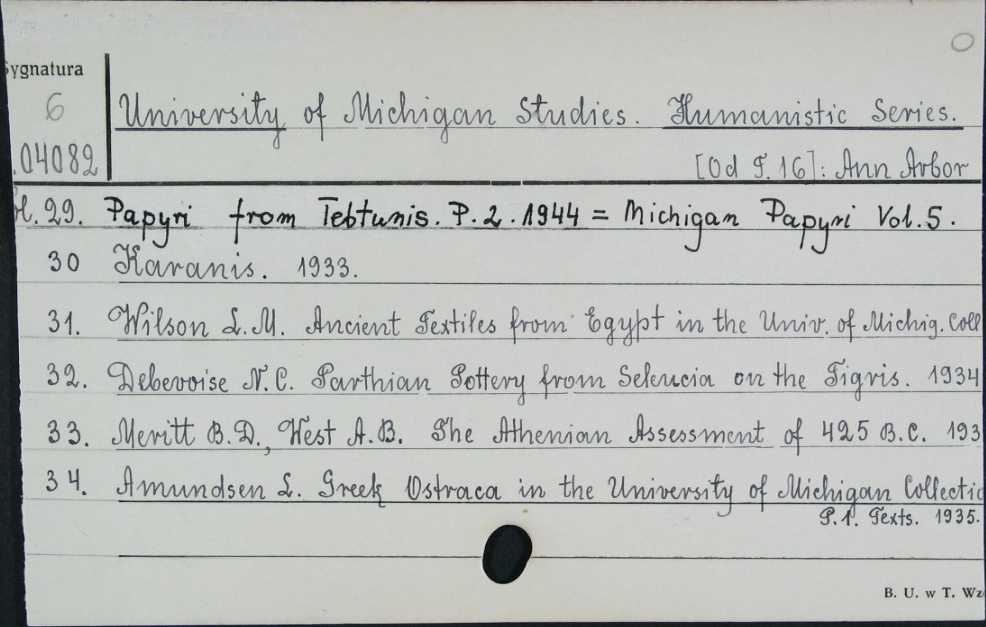 Sygnatura
6
.04082
University of Michigan Studies. Humanistic Series.
[Od T. 16]: Ann Arbor
ol. 29. Papyri from Tebtunis. P. 2. 1944 = Michigan Papyri Vol. 5.
30 Karanis. 1933.
31. Wilson L. M. Ancient Textiles from Egypt in the Univ. of Michig. Coll
32. Debevoise N. C. Parthian Pottery from Seleucia on the Tigris. 1934
33. Meritt B. D., West A. B. The Athenian Assessment of 425 B. C. 193
34. Amundsen L. Greek Ostraca in the University of Michigan Collectio
P. 1. Texts. 1935.
B. U. w T. Wz